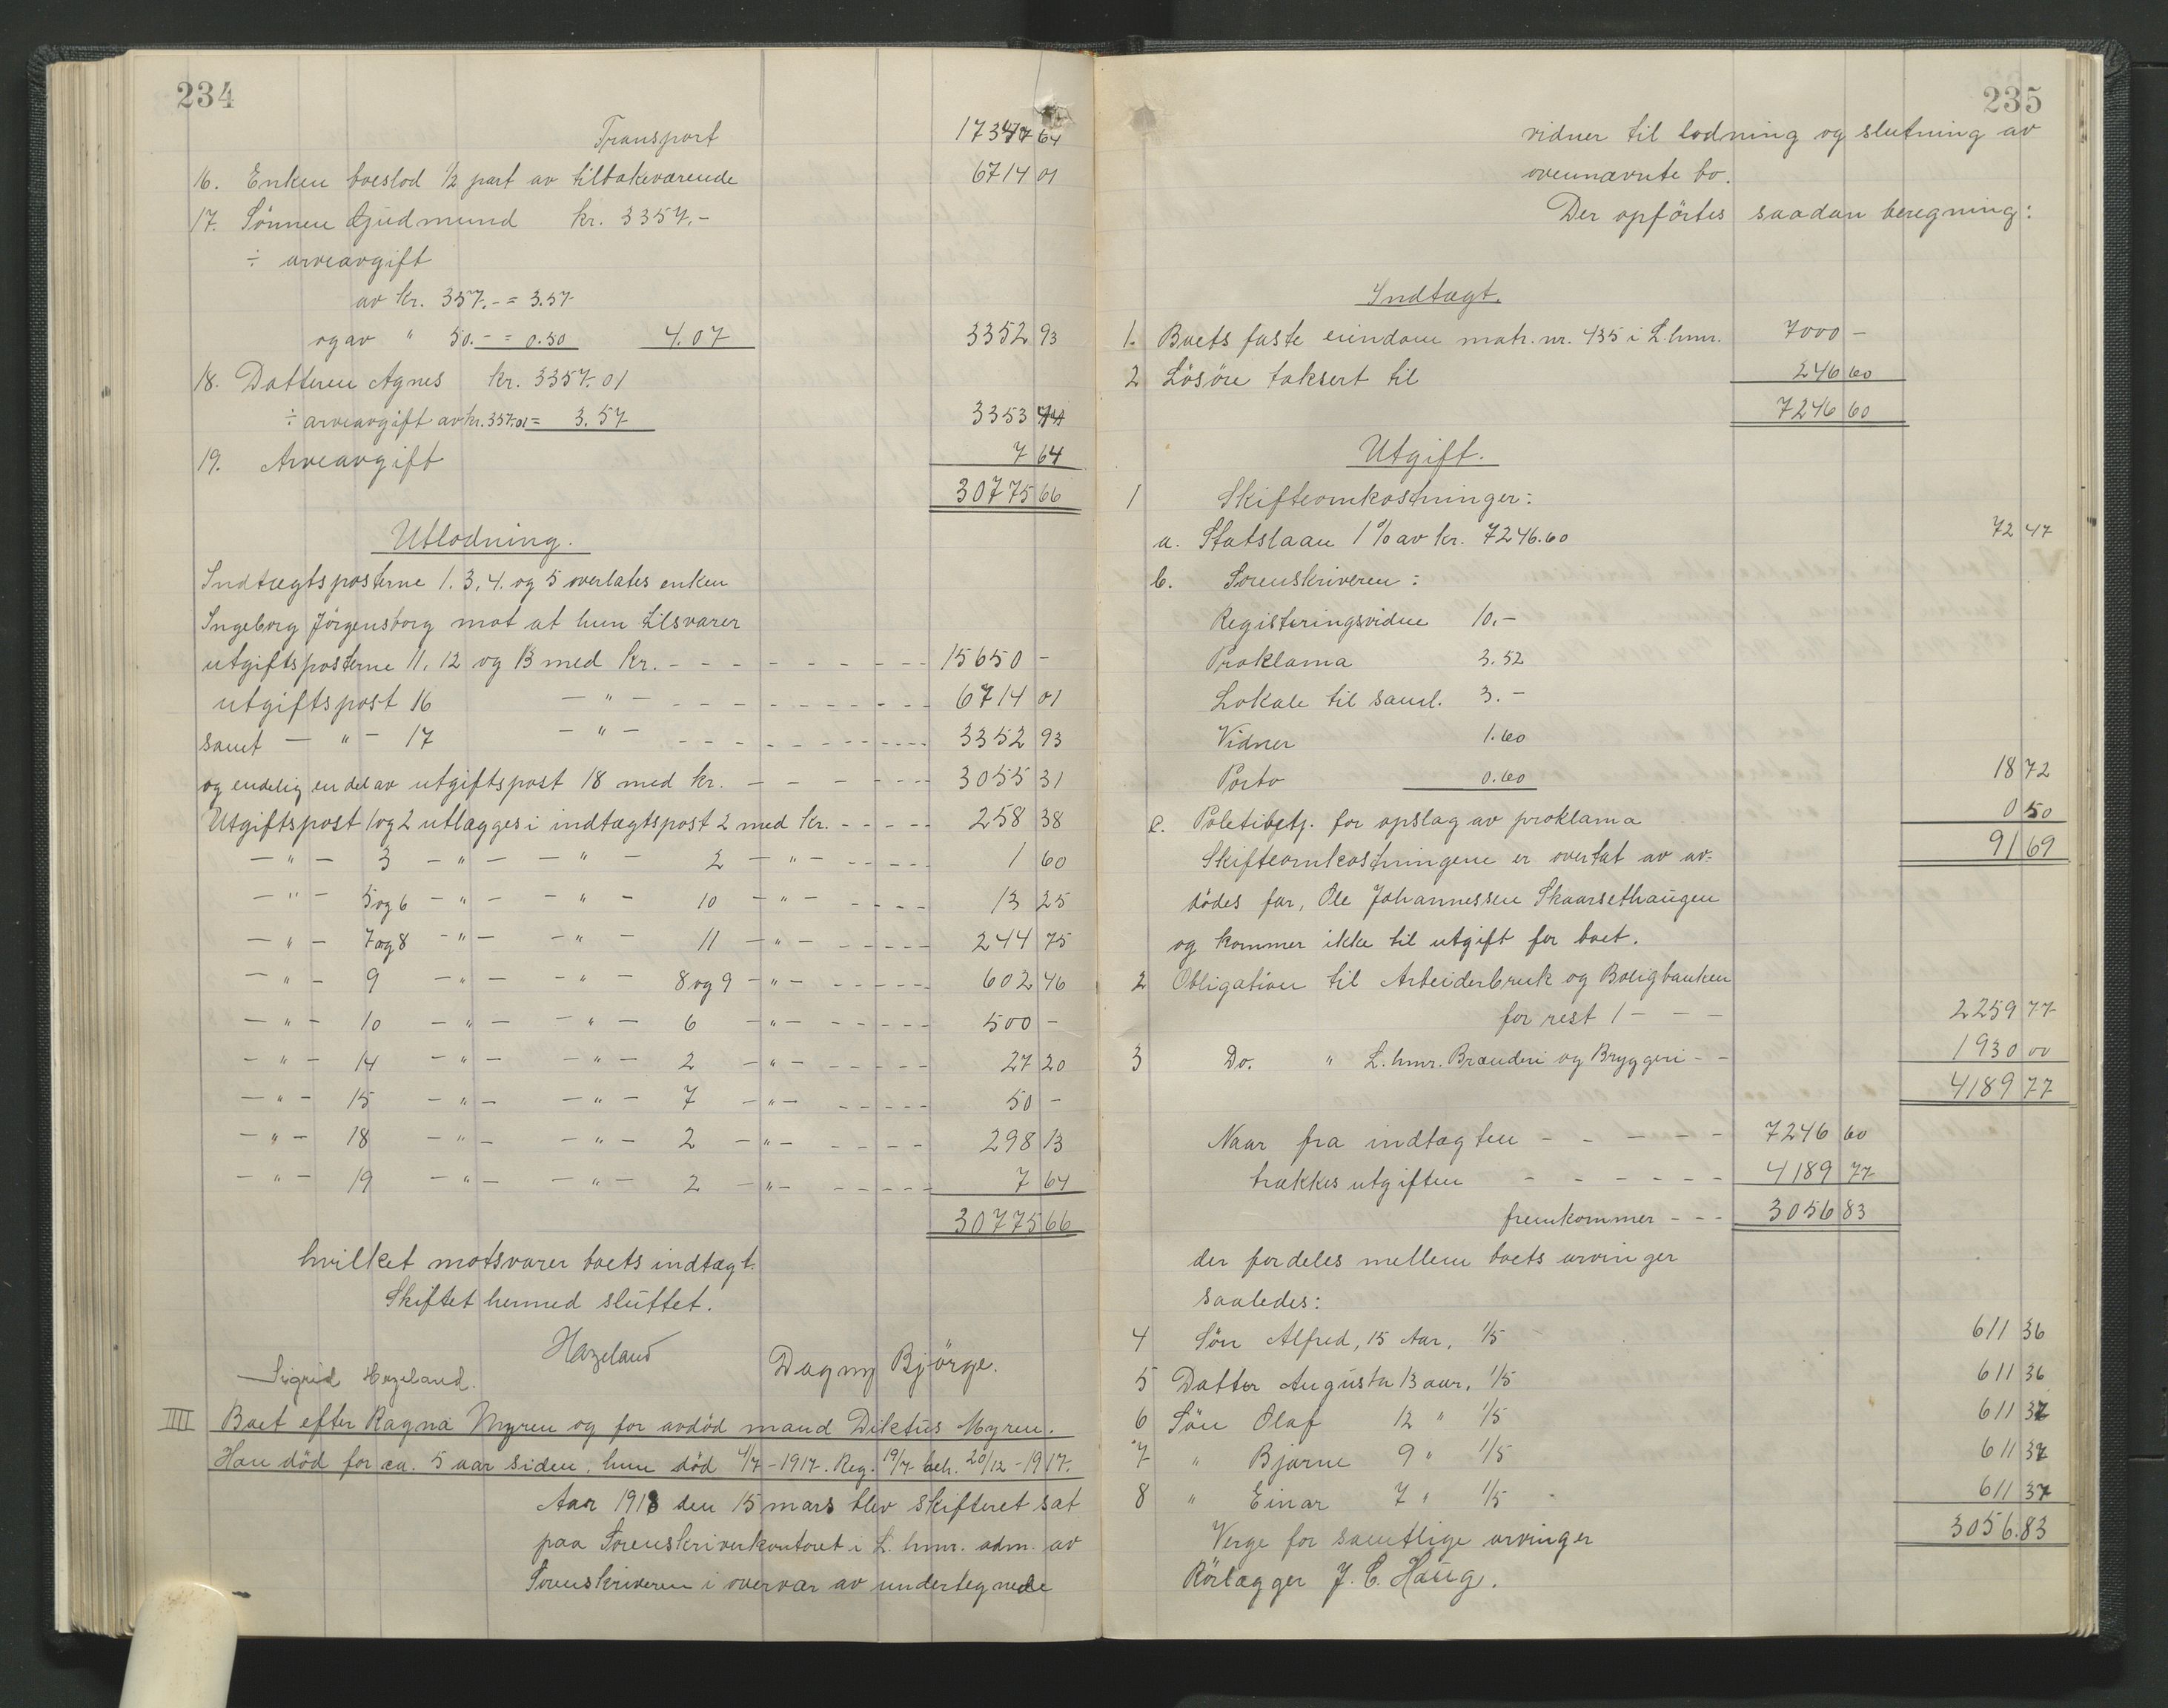 234
Transport 17347 64
16. Enken boeslod 1/2 part av tilbakeværende 6714 01
17. Sönnen Gudmund kr. 3357,-
÷ arveavgift
av kr. 357.- = 3.57
og av " 50.- = 0.50 4.07 3352 93
18. Datteren Agnes kr. 3357.01
÷ arveavgift av kr. 357.01 = 3.57 3353 44
19. Arveavgift 7 64
30775 66
Utlodning.
Indtægtsposterne 1. 3, 4. og 5 overlates enken
Ingeborg Jörgensborg mot at hun tilsvarer
utgiftsposterne 11, 12 og 13 med kr. - - - - - - - - - 15650 -
utgiftspost 16 - " - - - - - - - - - - 6714 01
samt - " - 17 - " - - - - - - - - - - 3352 93
og endelig en del av utgiftspost 18 med kr. - - - - - - 3055 31
Utgiftspost 1 og 2 utlægges i indtægtspost 2 med kr. - - - - - 258 38
- " - 3 - " - - " - 2 - " - - - - - - 1 60
- " - 5 og 6 - " - - " - 10 - " - - - - - 13 25
- " - 7 og 8 - " - - " - 11 - " - - - - - - 244 75
- " - 9 - " - - " - 8 og 9 - " - - - - - - 602 46
- " - 10 - " - - " - 6 - " - - - - - - 500 -
- " - 14 - " - - " - 2 - " - - - - - - 27 20
- " - 15 - " - - " - 7 - " - - - - - - 50 -
- " - 18 - " - - " - 2 - " - - - - - 298 13
- " - 19 - " - - " - 2 - " - - - - - - 7 64
30775 66
hvilket motsvarer boets indtægt.
Skiftet hermed sluttet.
Hazeland
Sigrid Hazeland. Dagny Björge.
IIII Boet efter Ragna Myren og for avdöd mand Diktus Myren.
Han död for ca. 5 aar siden, hun död 4/7-1917. Reg. 19/7 beh. 20/12-1917.
Aar 1918 den 15 mars blev skifteret sat
paa Sorenskriverkontoret i L. hmr. adm. av
Sorenskriveren i overvær av undertegnede
235
vidner til lodning og slutning av
ovennævnte bo.
Der opförtes saadan beregning:
Indtægt.
1. Boets faste eiendom matr. nr. 435 i L. hmr. 7000 -
2 Lösöre taksert til 246 60
7246 60
Utgift.
1 Skifteomkostninger:
a. Statslaan 1% av kr. 7246.60 72 47
b. Sorenskriveren:
Registeringsvidne 10.-
Proklama 3.52
Lokale til saml. 3.-
Vidner 1.60
Porto 0.60 18 72
c. Politibetj. for opslag av proklama 0 50
Skifteomkostningene er overtat av av- 91 69
dödes far, Ole Johannessen Skaarsethaugen
og kommer ikke til utgift for boet.
2 Obligation til Arbeiderbruk og Boligbanken
for rest 1 - - - 2259 77
3 Do. " L. hmr. Brænderi og Bryggeri - - 1930 00
4189 77
Naar fra indtægten - - - - - 7246 60
trækkes utgiften - - - - - - 4189 77
fremkommer - - - 3056 83
der fordeles mellem boets arvinger
saaledes:
4 Sön Alfred, 15 Aar, 1/5 611 36
5 Datter Augusta 13 aar, 1/5 611 36
6 Sön Olaf 12 " 1/5 611 37
7 " Bjarne 9 " 1/5 611 37
8 " Einar 7 " 1/5 611 37
Verge for samtlige arvinger 3056.83
Rörlægger J. C. Haug.